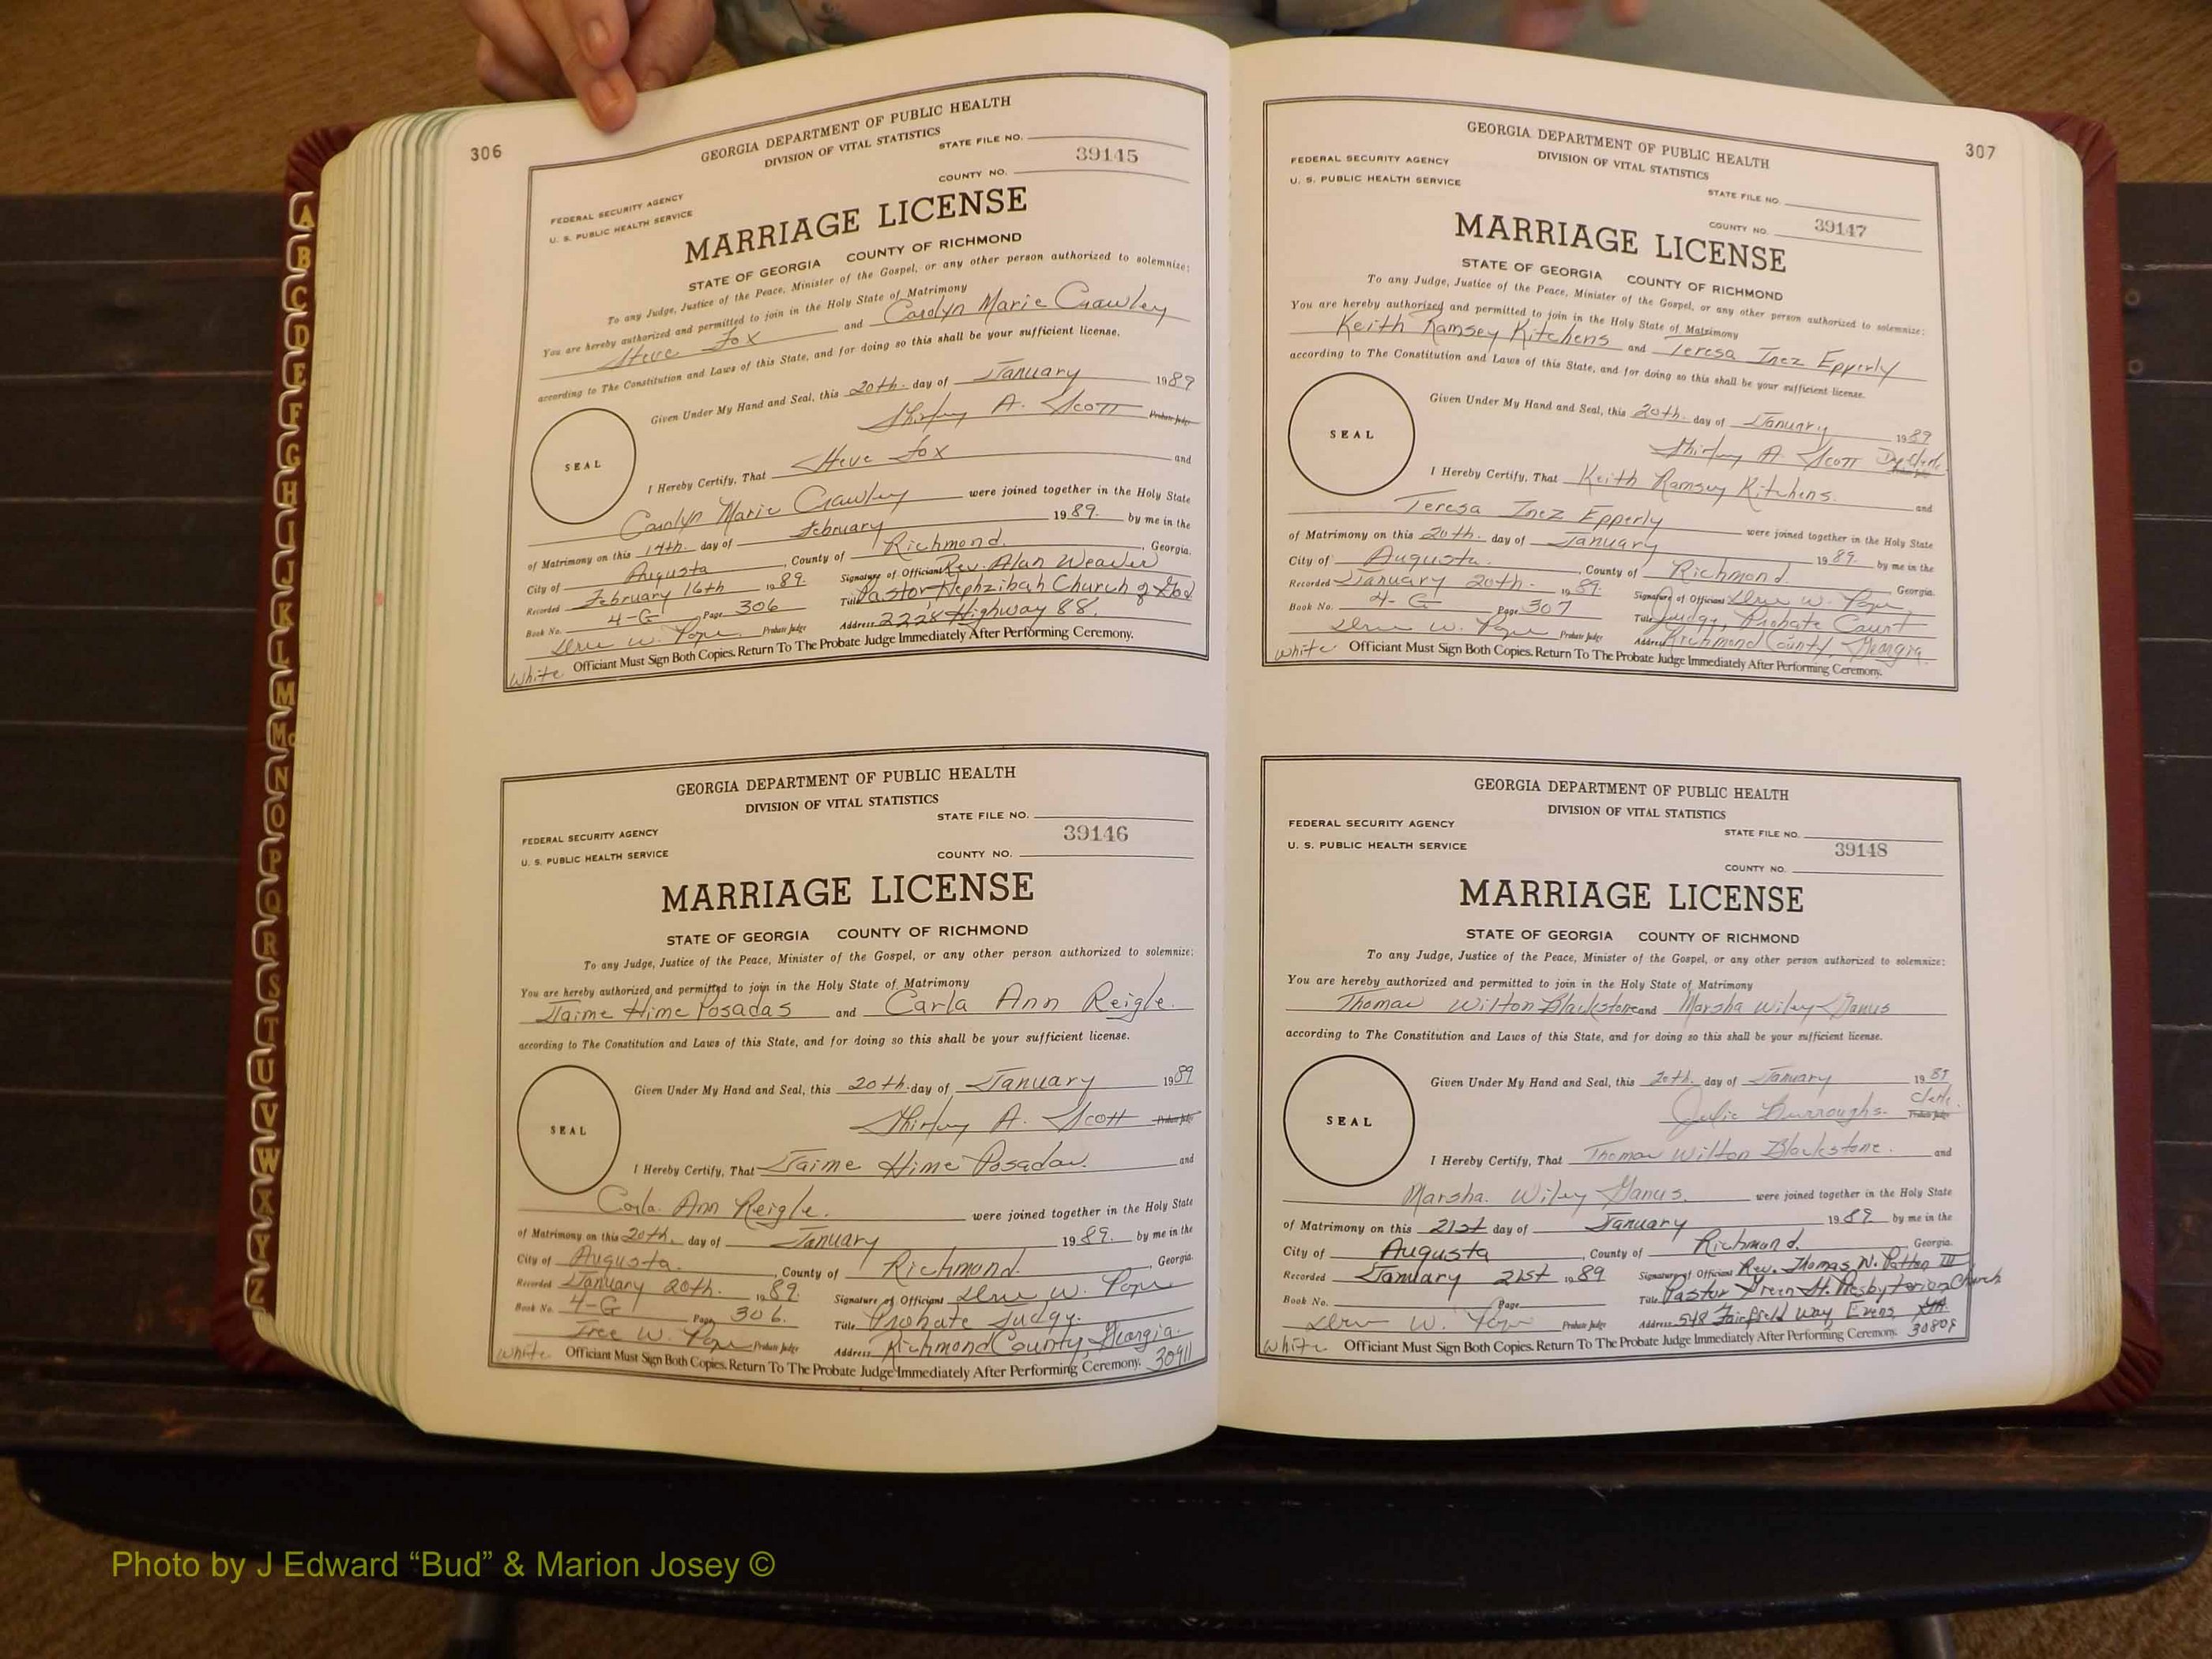 306
GEORGIA DEPARTMENT OF PUBLIC HEALTH
DIVISION OF VITAL STATISTICS
STATE FILE NO.
39145
COUNTY NO.
FEDERAL SECURITY AGENCY
U. S. PUBLIC HEALTH SERVICE
MARRIAGE LICENSE
STATE OF GEORGIA COUNTY OF RICHMOND
To any Judge, Justice of the Peace, Minister of the Gospel, or any other person authorized to solemnize:
You are hereby authorized and permitted to join in the Holy State of Matrimony
Steve Fox and Carolyn Marie Crawley
according to The Constitution and Laws of this State, and for doing so this shall be your sufficient license.
Given Under My Hand and Seal, this 20th. day of January 1989
Shirley A. Scott Probate Judge
SEAL
I Hereby Certify, That Steve Fox and
Carolyn Marie Crawley were joined together in the Holy State
of Matrimony on this 14th. day of February 1989. by me in the
City of Augusta, County of Richmond, Georgia.
Recorded February 16th 1989. Signature of Officiant Rev. Alan Weaver
Book No. 4-G Page 306 Title Pastor Hephzibah Church of God
Probate Judge Address 2228 Highway 88.
White Officiant Must Sign Both Copies. Return To The Probate Judge Immediately After Performing Ceremony.
GEORGIA DEPARTMENT OF PUBLIC HEALTH
DIVISION OF VITAL STATISTICS
STATE FILE NO.
39146
FEDERAL SECURITY AGENCY
U. S. PUBLIC HEALTH SERVICE
COUNTY NO.
MARRIAGE LICENSE
STATE OF GEORGIA COUNTY OF RICHMOND
To any Judge, Justice of the Peace, Minister of the Gospel, or any other person authorized to solemnize:
You are hereby authorized and permitted to join in the Holy State of Matrimony
Jaime Hime Posadas and Carla Ann Reigle.
according to The Constitution and Laws of this State, and for doing so this shall be your sufficient license.
Given Under My Hand and Seal, this 20th. day of January 1989
Shirley A. Scott Probate Judge
SEAL
I Hereby Certify, That Jaime Hime Posadas. and
Carla Ann Reigle. were joined together in the Holy State
of Matrimony on this 20th. day of January 1989. by me in the
City of Augusta., County of Richmond. Georgia.
Recorded January 20th. 1989. Signature of Officiant W. Pope
Book No. 4-G Page 306. Title Probate Judge.
W. Pope Probate Judge Address Richmond County, Georgia.
White Officiant Must Sign Both Copies. Return To The Probate Judge Immediately After Performing Ceremony. 30911
307
GEORGIA DEPARTMENT OF PUBLIC HEALTH
DIVISION OF VITAL STATISTICS
FEDERAL SECURITY AGENCY
U. S. PUBLIC HEALTH SERVICE
STATE FILE NO.
COUNTY NO. 39147
MARRIAGE LICENSE
STATE OF GEORGIA COUNTY OF RICHMOND
To any Judge, Justice of the Peace, Minister of the Gospel, or any other person authorized to solemnize:
You are hereby authorized and permitted to join in the Holy State of Matrimony
Keith Ramsey Kitchens and Teresa Inez Epperly
according to The Constitution and Laws of this State, and for doing so this shall be your sufficient license.
Given Under My Hand and Seal, this 20th. day of January 1989
Shirley A. Scott Dep. Clerk
SEAL
I Hereby Certify, That Keith Ramsey Kitchens. and
Teresa Inez Epperly were joined together in the Holy State
of Matrimony on this 20th. day of January 1989. by me in the
City of Augusta., County of Richmond. Georgia.
Recorded January 20th. 1989. Signature of Officiant W. Pope
Book No. 4-G Page 307 Title Judge, Probate Court
W. Pope Probate Judge Address Richmond County, Georgia.
White Officiant Must Sign Both Copies. Return To The Probate Judge Immediately After Performing Ceremony.
GEORGIA DEPARTMENT OF PUBLIC HEALTH
DIVISION OF VITAL STATISTICS
FEDERAL SECURITY AGENCY
STATE FILE NO.
U. S. PUBLIC HEALTH SERVICE
39148
COUNTY NO.
MARRIAGE LICENSE
STATE OF GEORGIA COUNTY OF RICHMOND
To any Judge, Justice of the Peace, Minister of the Gospel, or any other person authorized to solemnize:
You are hereby authorized and permitted to join in the Holy State of Matrimony
Thomas Wilton Blackstone and Marsha Wiley Ganus
according to The Constitution and Laws of this State, and for doing so this shall be your sufficient license.
Given Under My Hand and Seal, this 20th. day of January 1989
Julie Burroughs. Clerk. Probate Judge
SEAL
I Hereby Certify, That Thomas Wilton Blackstone. and
Marsha. Wiley Ganus. were joined together in the Holy State
of Matrimony on this 21st day of January 1989 by me in the
City of Augusta, County of Richmond. Georgia.
Recorded January 21st 1989 Signature of Officiant Rev. Thomas N. Patton III
Book No. Page Title Pastor Green St. Presbyterian Church
W. Pope Probate Judge Address 548 Fairfield Way, Evans, GA.
White Officiant Must Sign Both Copies. Return To The Probate Judge Immediately After Performing Ceremony. 30809
A
B
C
D
E
F
G
H
I
J
K
L
M
Mc
N
O
P
Q
R
S
T
U
V
W
X
Y
Z
Photo by J Edward “Bud” & Marion Josey ©